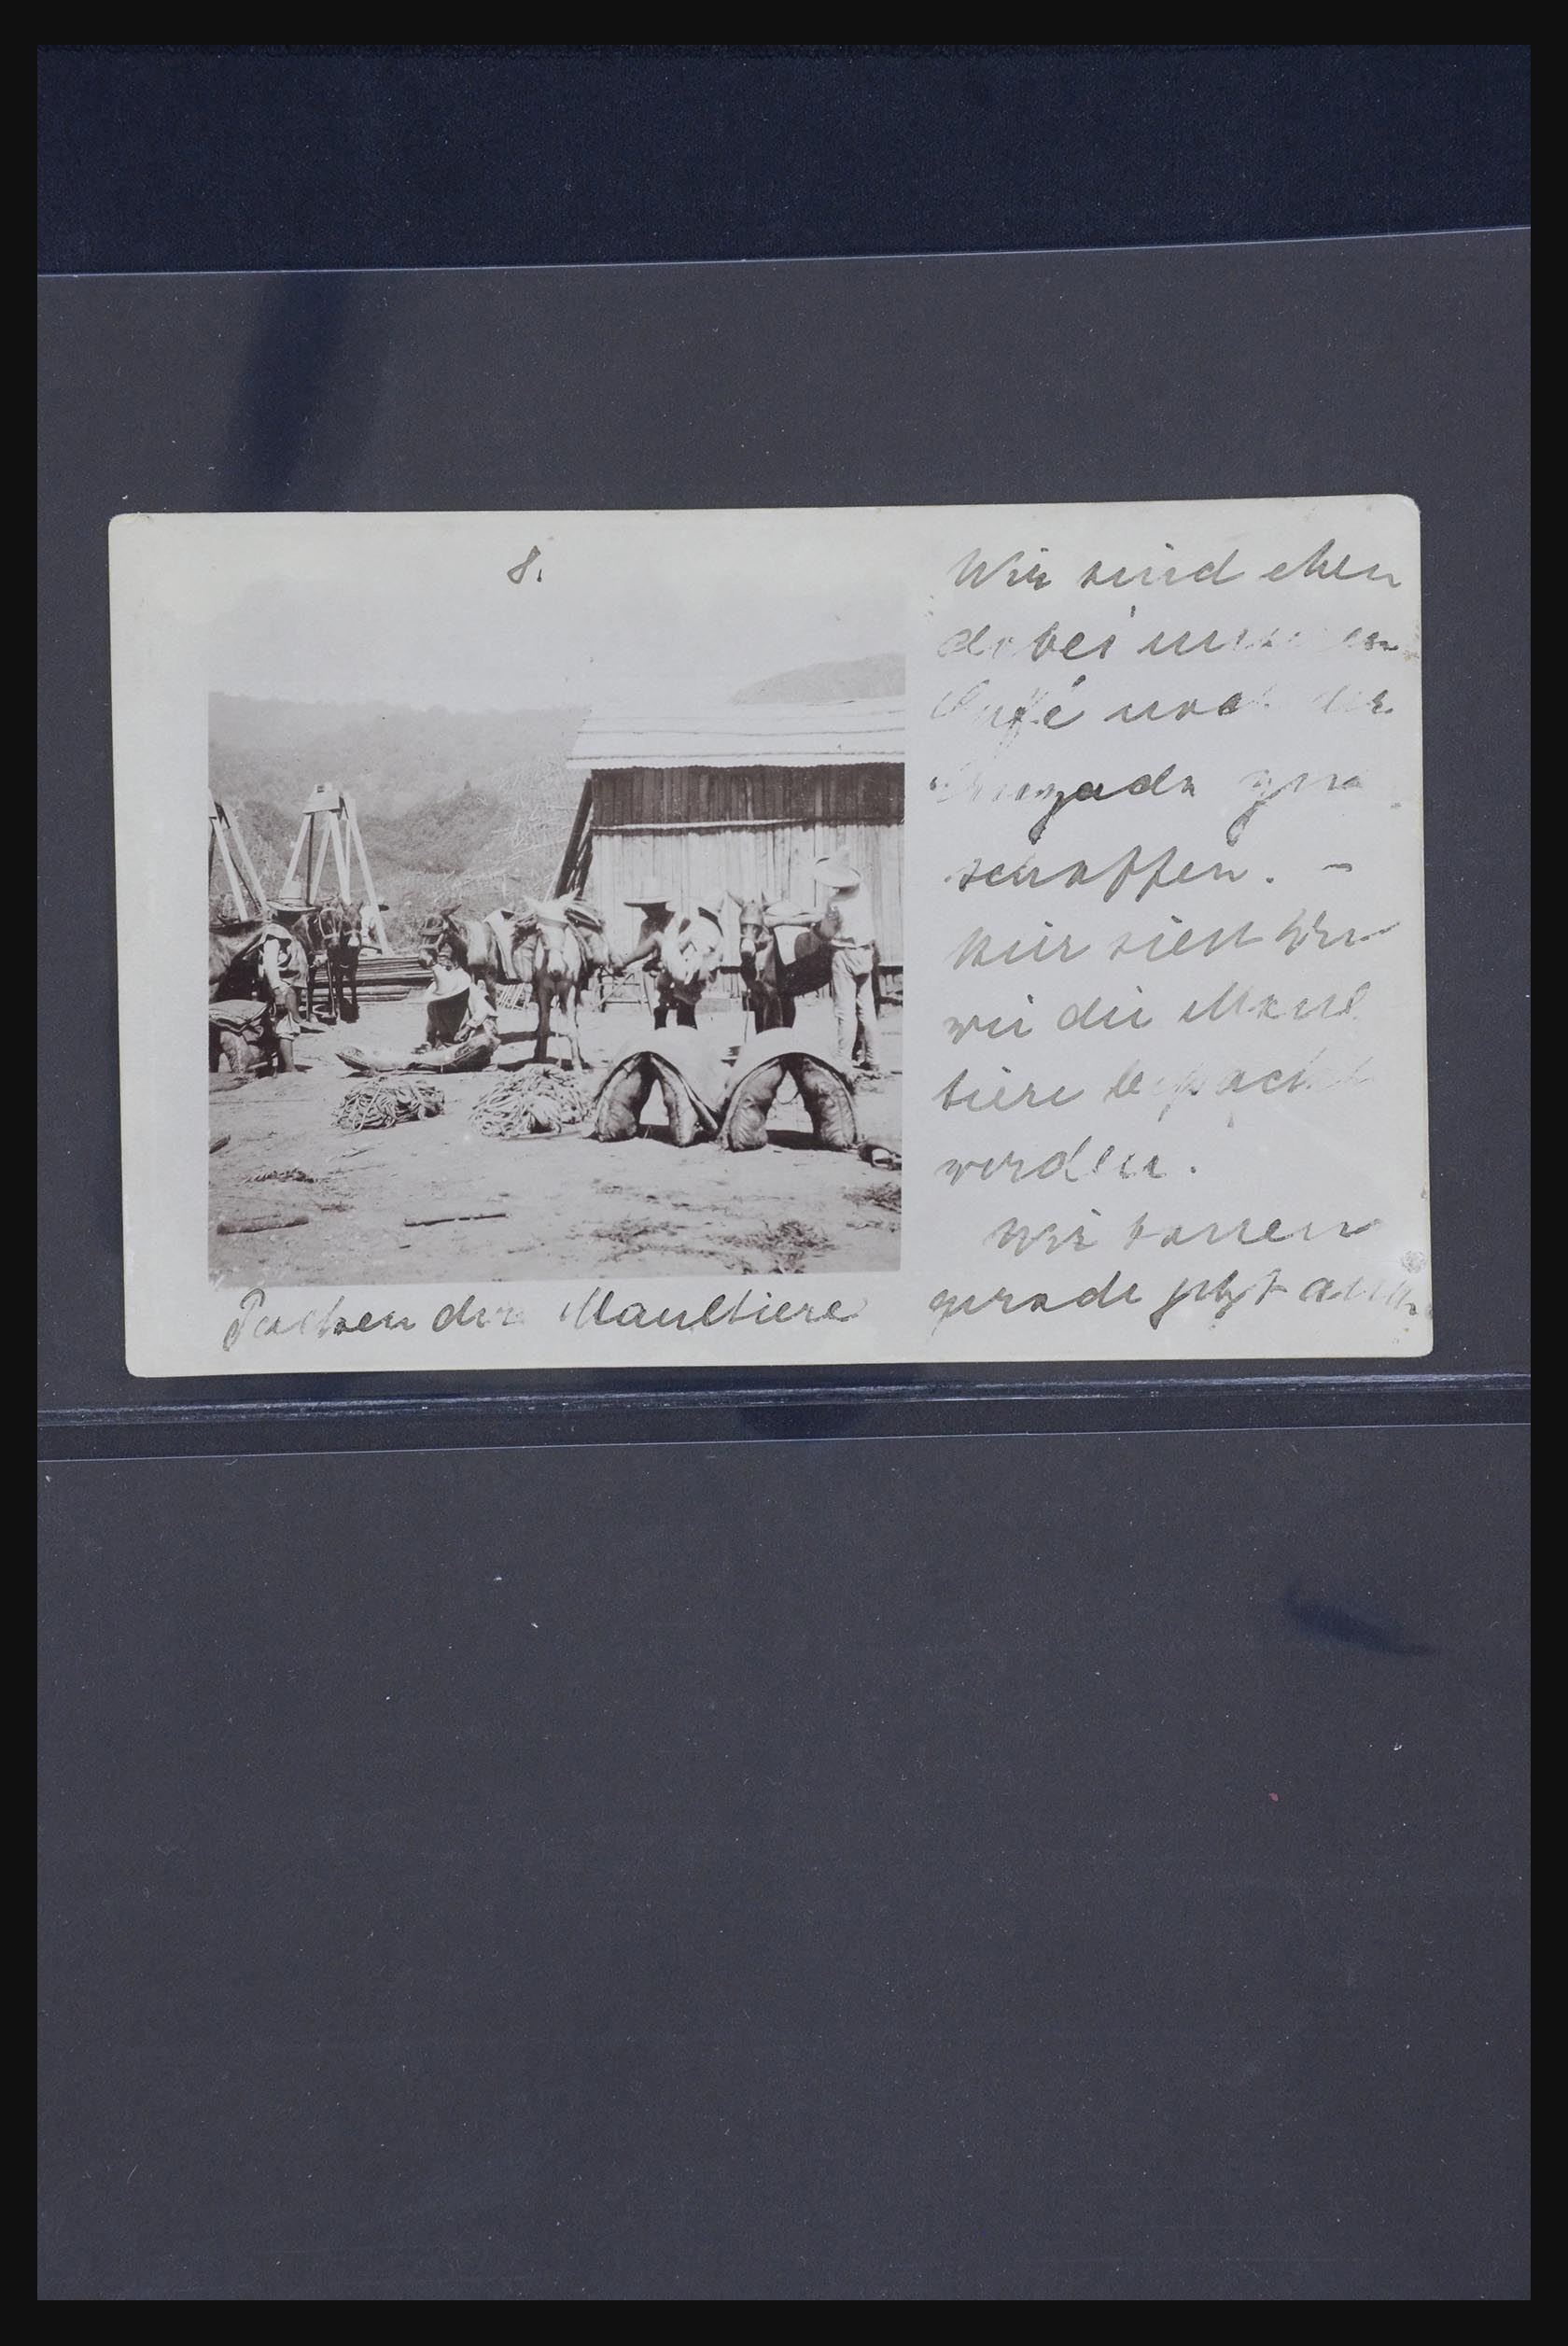 8.
Wir sind eben
dabei unseren
Kaffe nach der
zu
schaffen. –
Hier siest Du
wie die Maul
tiere bepackt
werden.
Wir bauen
gerade jetzt
Packen der Maultiere